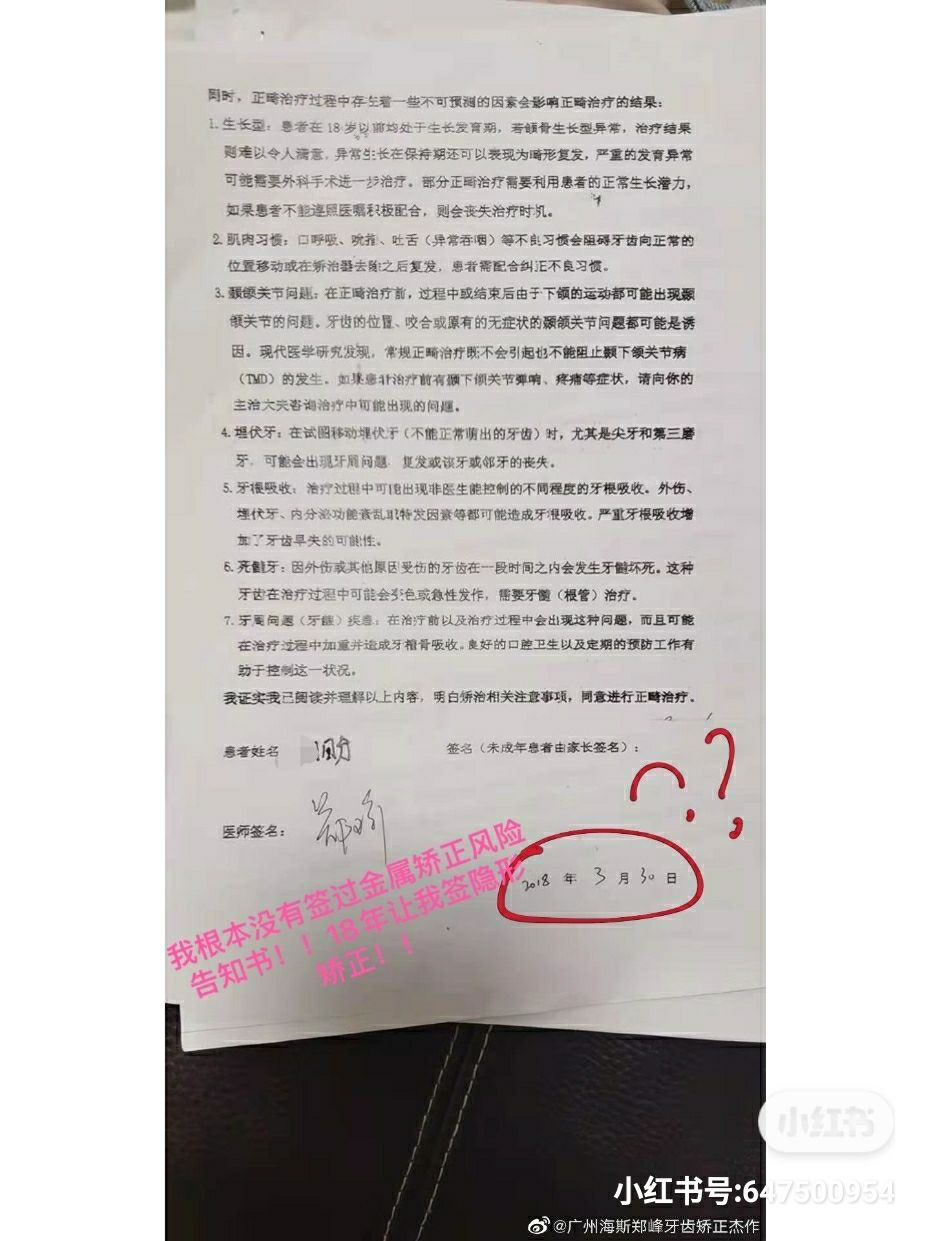 同时，正畸治疗过程中存在着一些不可预测的因素会影响正畸治疗的结果：
1. 生长型：患者在 18 岁以前均处于生长发育期，若颌骨生长型异常，治疗结果
则难以令人满意，异常生长在保持期还可以表现为畸形复发，严重的发育异常
可能需要外科手术进一步治疗。部分正畸治疗需要利用患者的正常生长潜力，
如果患者不能遵照医嘱积极配合，则会丧失治疗时机。
2. 肌肉习惯：口呼吸、吮指、吐舌（异常吞咽）等不良习惯会阻碍牙齿向正常的
位置移动或在矫治器去除之后复发，患者需配合纠正不良习惯。
3. 颞颌关节问题：在正畸治疗前，过程中或结束后由于下颌的运动都可能出现颞
颌关节的问题。牙齿的位置、咬合或原有的无症状的颞颌关节问题都可能是诱
因。现代医学研究发现，常规正畸治疗既不会引起也不能阻止颞下颌关节病
（TMD）的发生。如果患者治疗前有颞下颌关节弹响、疼痛等症状，请向你的
主治大夫咨询治疗中可能出现的问题。
4. 埋伏牙：在试图移动埋伏牙（不能正常萌出的牙齿）时，尤其是尖牙和第三磨
牙，可能会出现牙周问题、复发或该牙或邻牙的丧失。
5. 牙根吸收：治疗过程中可能出现非医生能控制的不同程度的牙根吸收。外伤、
埋伏牙、内分泌功能紊乱或特发因素等都可能造成牙根吸收。严重牙根吸收增
加了牙齿早失的可能性。
6. 死髓牙：因外伤或其他原因受伤的牙齿在一段时间之内会发生牙髓坏死。这种
牙齿在治疗过程中可能会变色或急性发作，需要牙髓（根管）治疗。
7. 牙周问题（牙龈）疾患：在治疗前以及治疗过程中会出现这种问题，而且可能
在治疗过程中加重并造成牙槽骨吸收。良好的口腔卫生以及定期的预防工作有
助于控制这一状况。
我证实我已阅读并理解以上内容，明白矫治相关注意事项，同意进行正畸治疗。
患者姓名
签名（未成年患者由家长签名）：
??
医师签名：
2018 年 3 月 30 日
我根本没有签过金属矫正风险
告知书！！18年让我签隐形
矫正！！
小红书
小红书号:647500954
@广州海斯郑峰牙齿矫正杰作